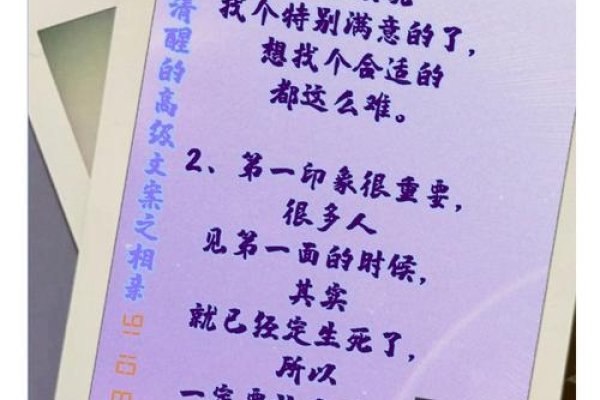 找个特别满意的了，
想找个合适的
都这么难。
2、第一印象很重要，
很多人
见第一面的时候，
其实
就已经定生死了，
所以
一定要
清醒的高级文案之相亲